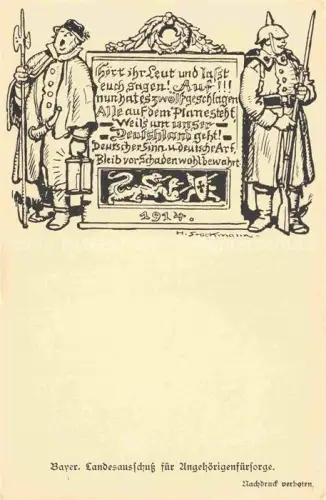 Hört ihr Leut und laßt
euch sagen! Auf!!!
nun hat es zwölf geschlagen
Alle auf dem Plane steht
Weils um unser
Deutschland geht!
Deutscher Sinn u. deutsche Art,
Bleib vor Schaden wohl bewahrt.
1914.
H. Stockmann
Bayer. Landesausschuß für Angehörigenfürsorge.
Nachdruck verboten.